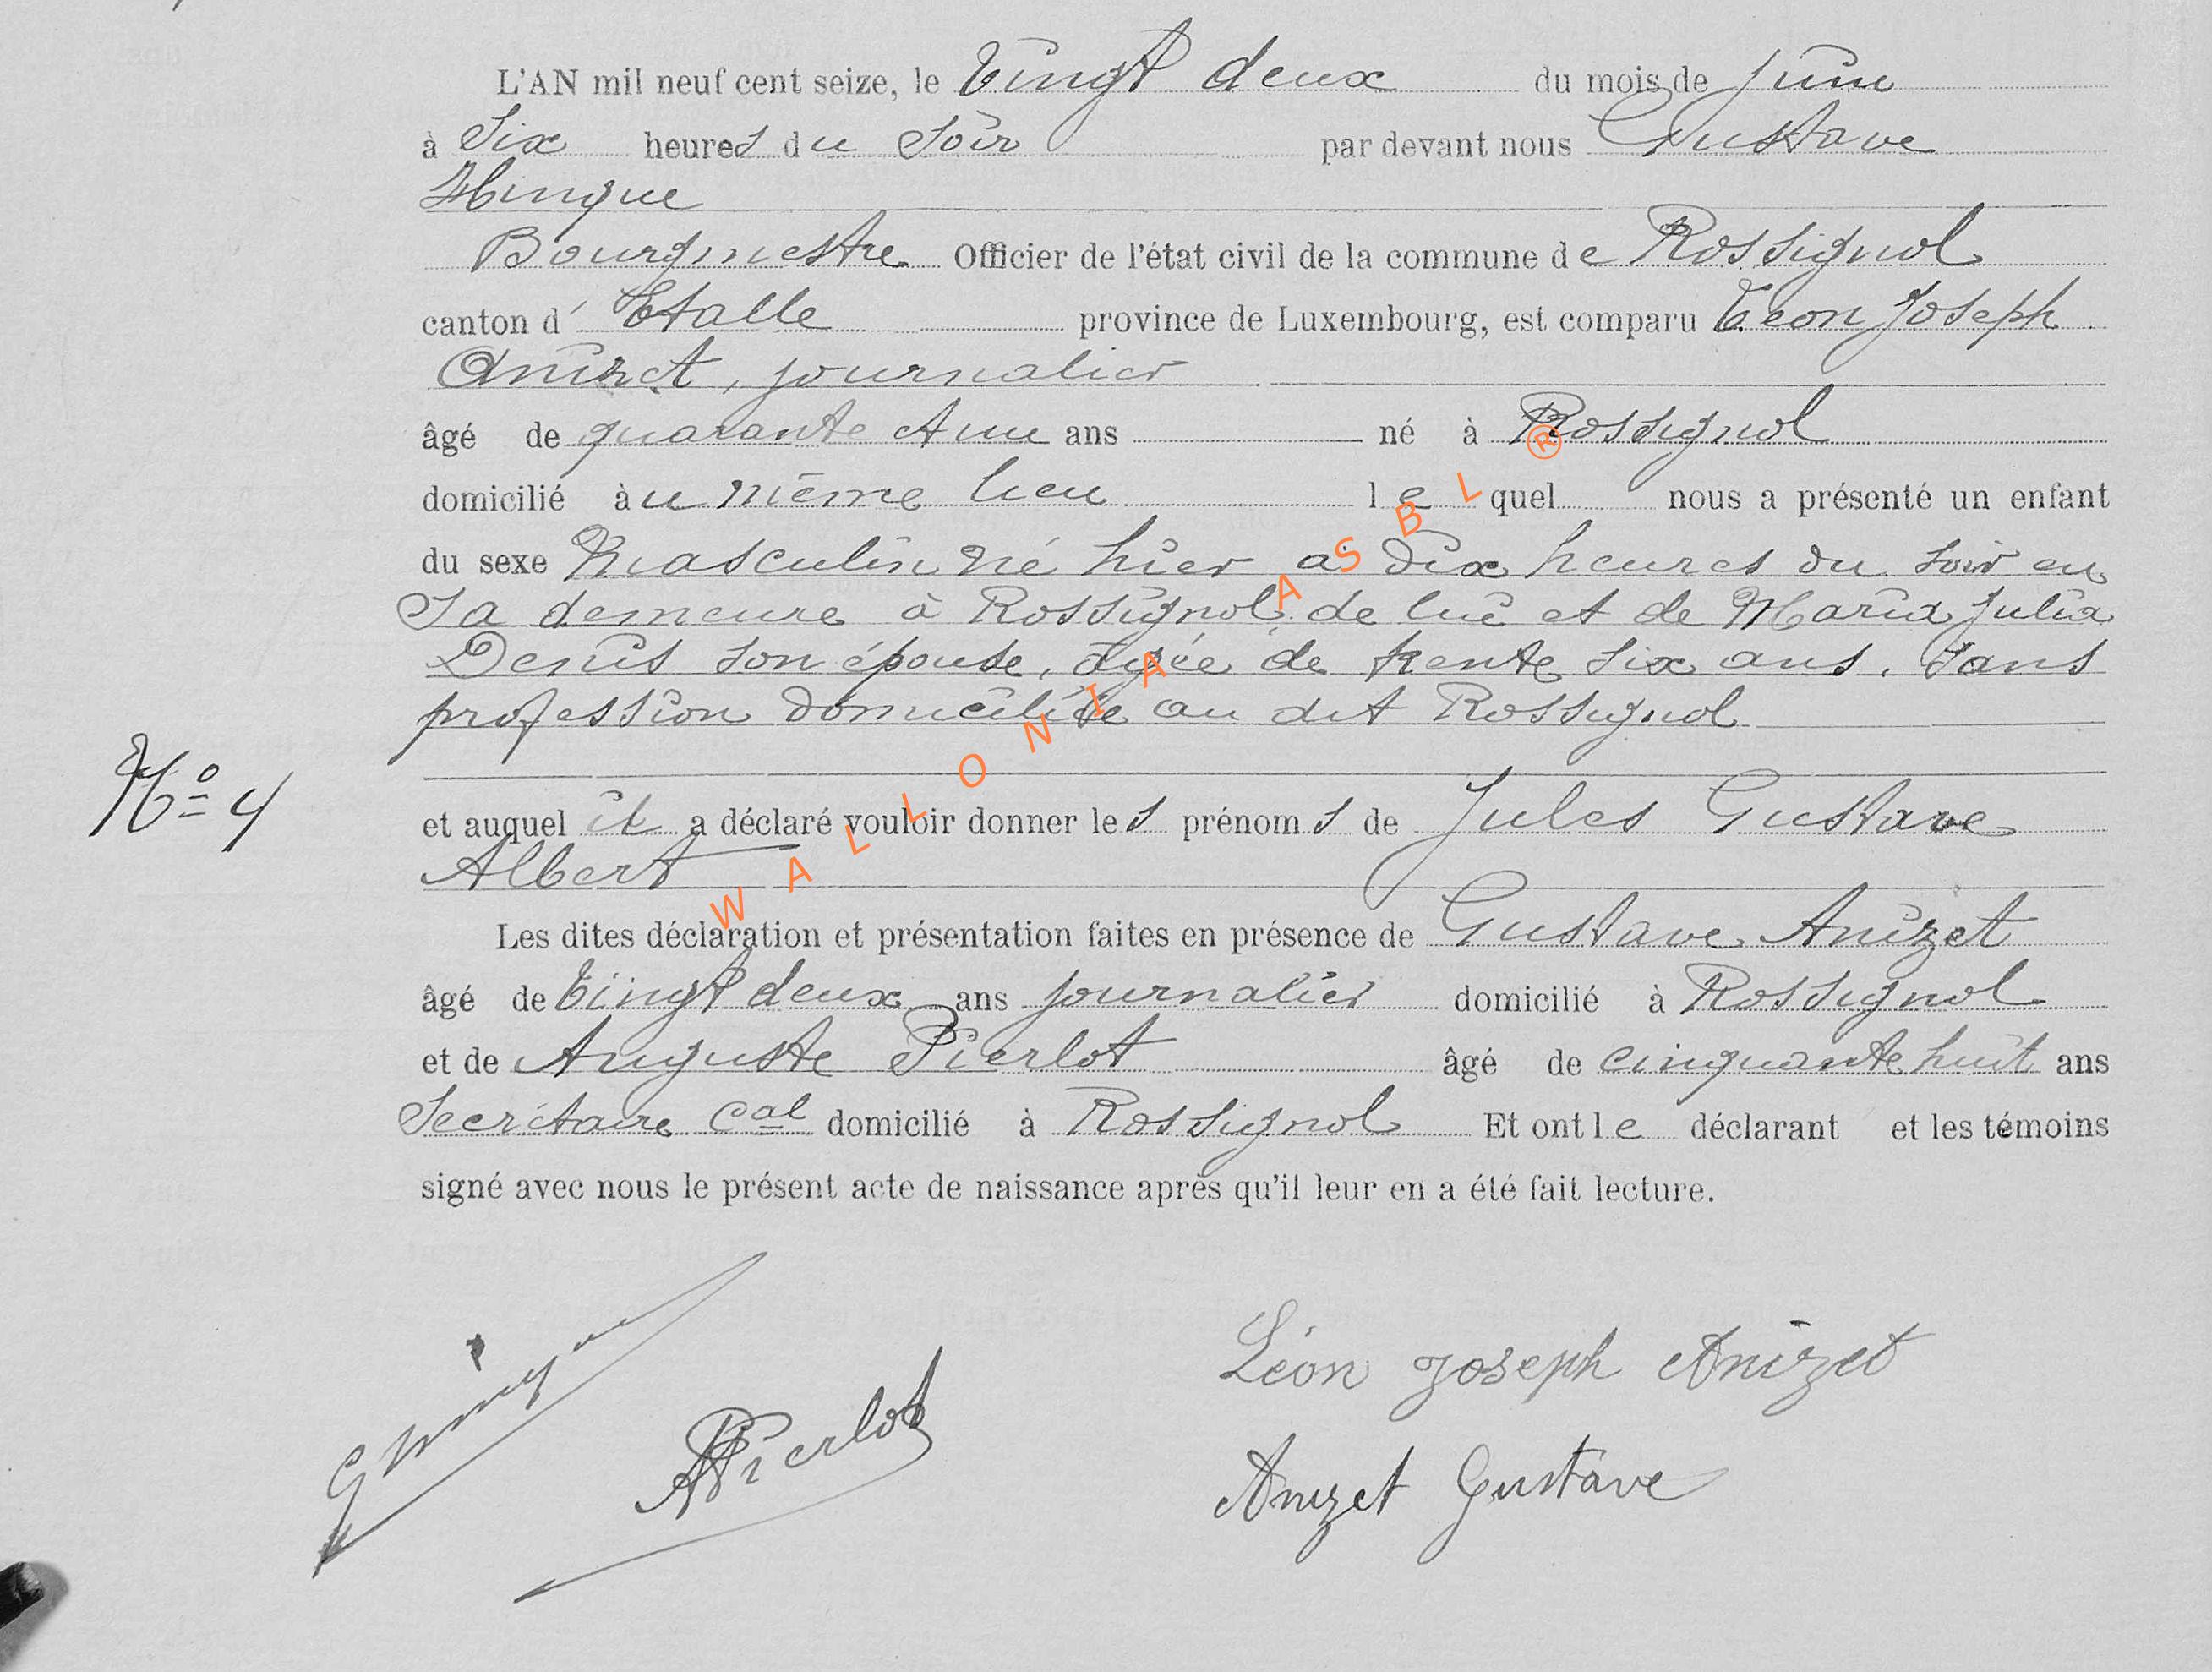 L'AN mil neuf cent seize, le Vingt deux du mois de juin
à Six heures du Soir par devant nous Gustave
Hinque
Bourgmestre Officier de l'état civil de la commune de Rossignol
canton d' Etalle province de Luxembourg, est comparu Léon Joseph
Anizet, journalier
âgé de quarante et un ans né à Rossignol
domicilié au même lieu lequel nous a présenté un enfant
du sexe Masculin né hier à dix heures du soir en
Sa demeure à Rossignol de lui et de Maria Julia
Denis son épouse, âgée de trente six ans, sans
profession domiciliée au dit Rossignol
No 4
et auquel il a déclaré vouloir donner les prénoms de Jules Gustave
Albert
Les dites déclaration et présentation faites en présence de Gustave Anizet
âgé de Vingt deux ans journalier domicilié à Rossignol
et de Auguste Pierlot âgé de cinquante huit ans
Secrétaire Cal domicilié à Rossignol Et ont le déclarant et les témoins
signé avec nous le présent acte de naissance après qu'il leur en a été fait lecture.
Léon Joseph Anizet
APierlot
Anizet Gustave
WALLONIA ASBL ®